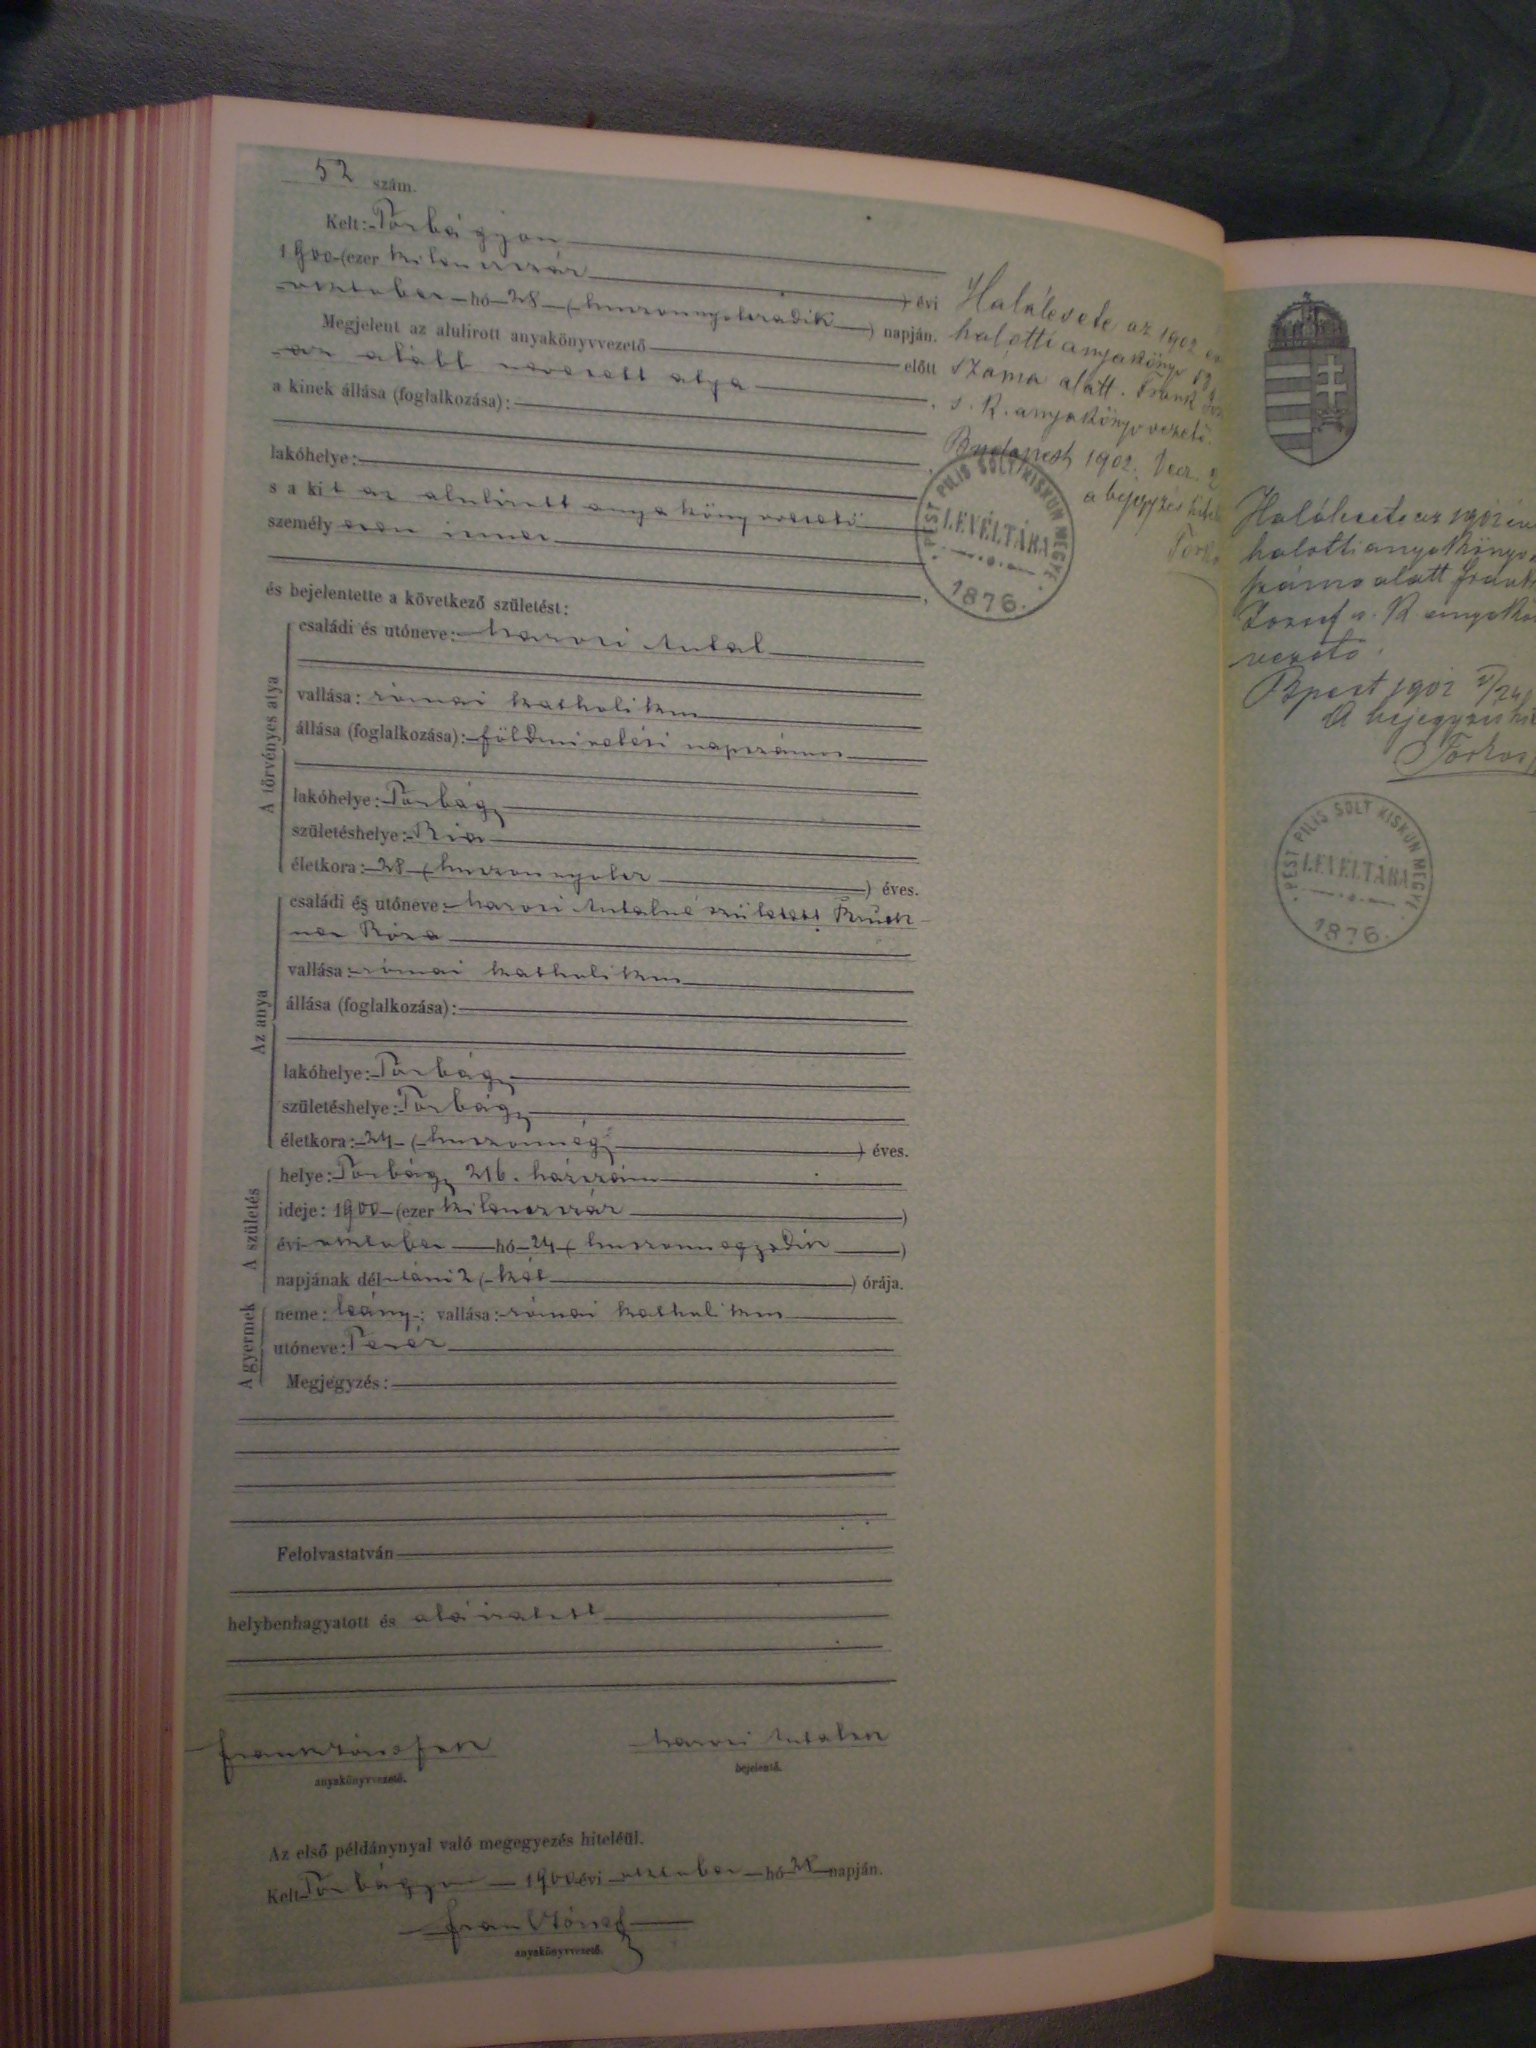 52 szám.
Kelt: Torbágyon
1900 (ezer kilenczszáz ) évi
október hó 28 (huszonnyolczadik ) napján.
Megjelent az alulirott anyakönyvvezető előtt
az alább nevezett atya
a kinek állása (foglalkozása):
lakóhelye:
s a kit az alulirott anyakönyvvezető
személyesen ismer
és bejelentette a következő születést:
A törvényes atya
családi és utóneve: Antal
vallása: római katholikus
állása (foglalkozása): földmivelési napszámos
lakóhelye: Torbágy
születéshelye: Bia
életkora: 28 (huszonnyolcz ) éves.
Az anya
családi és utóneve: Antalné született Bruck-
ner Róza
vallása: római katholikus
állása (foglalkozása):
lakóhelye: Torbágy
születéshelye: Torbágy
életkora: 24 (huszonnégy ) éves.
A születés
helye: Torbágy 216. házszám
ideje: 1900 (ezer kilenczszáz )
évi október hó 24 (huszonnegyedik )
napjának délutáni 2 (két ) órája.
A gyermek
neme: leány; vallása: római katholikus
utóneve: Teréz
Megjegyzés:
Felolvastatván
helybenhagyatott és aláiratott
anyakönyvvezető.
Antal
bejelentő.
Az első példánynyal való megegyezés hiteléül.
Kelt Torbágyon 1900 évi október hó 28 napján.
Frank József
anyakönyvvezető.
Halálesete az 1902 évi
halotti anyakönyv
száma alatt. Frank
s. k. anyakönyvvezető.
Budapest 1902. Decz. 2
a bejegyzés
PEST PILIS SOLT KISKUN MEGYE
LEVÉLTÁRA
1876.
Halálesete az 1902 évi
halotti anyakönyv
száma alatt Frank
József s. k. anyakönyv
vezető.
Bpest 1902
A bejegyzés
PEST PILIS SOLT KISKUN MEGYE
LEVÉLTÁRA
1876.